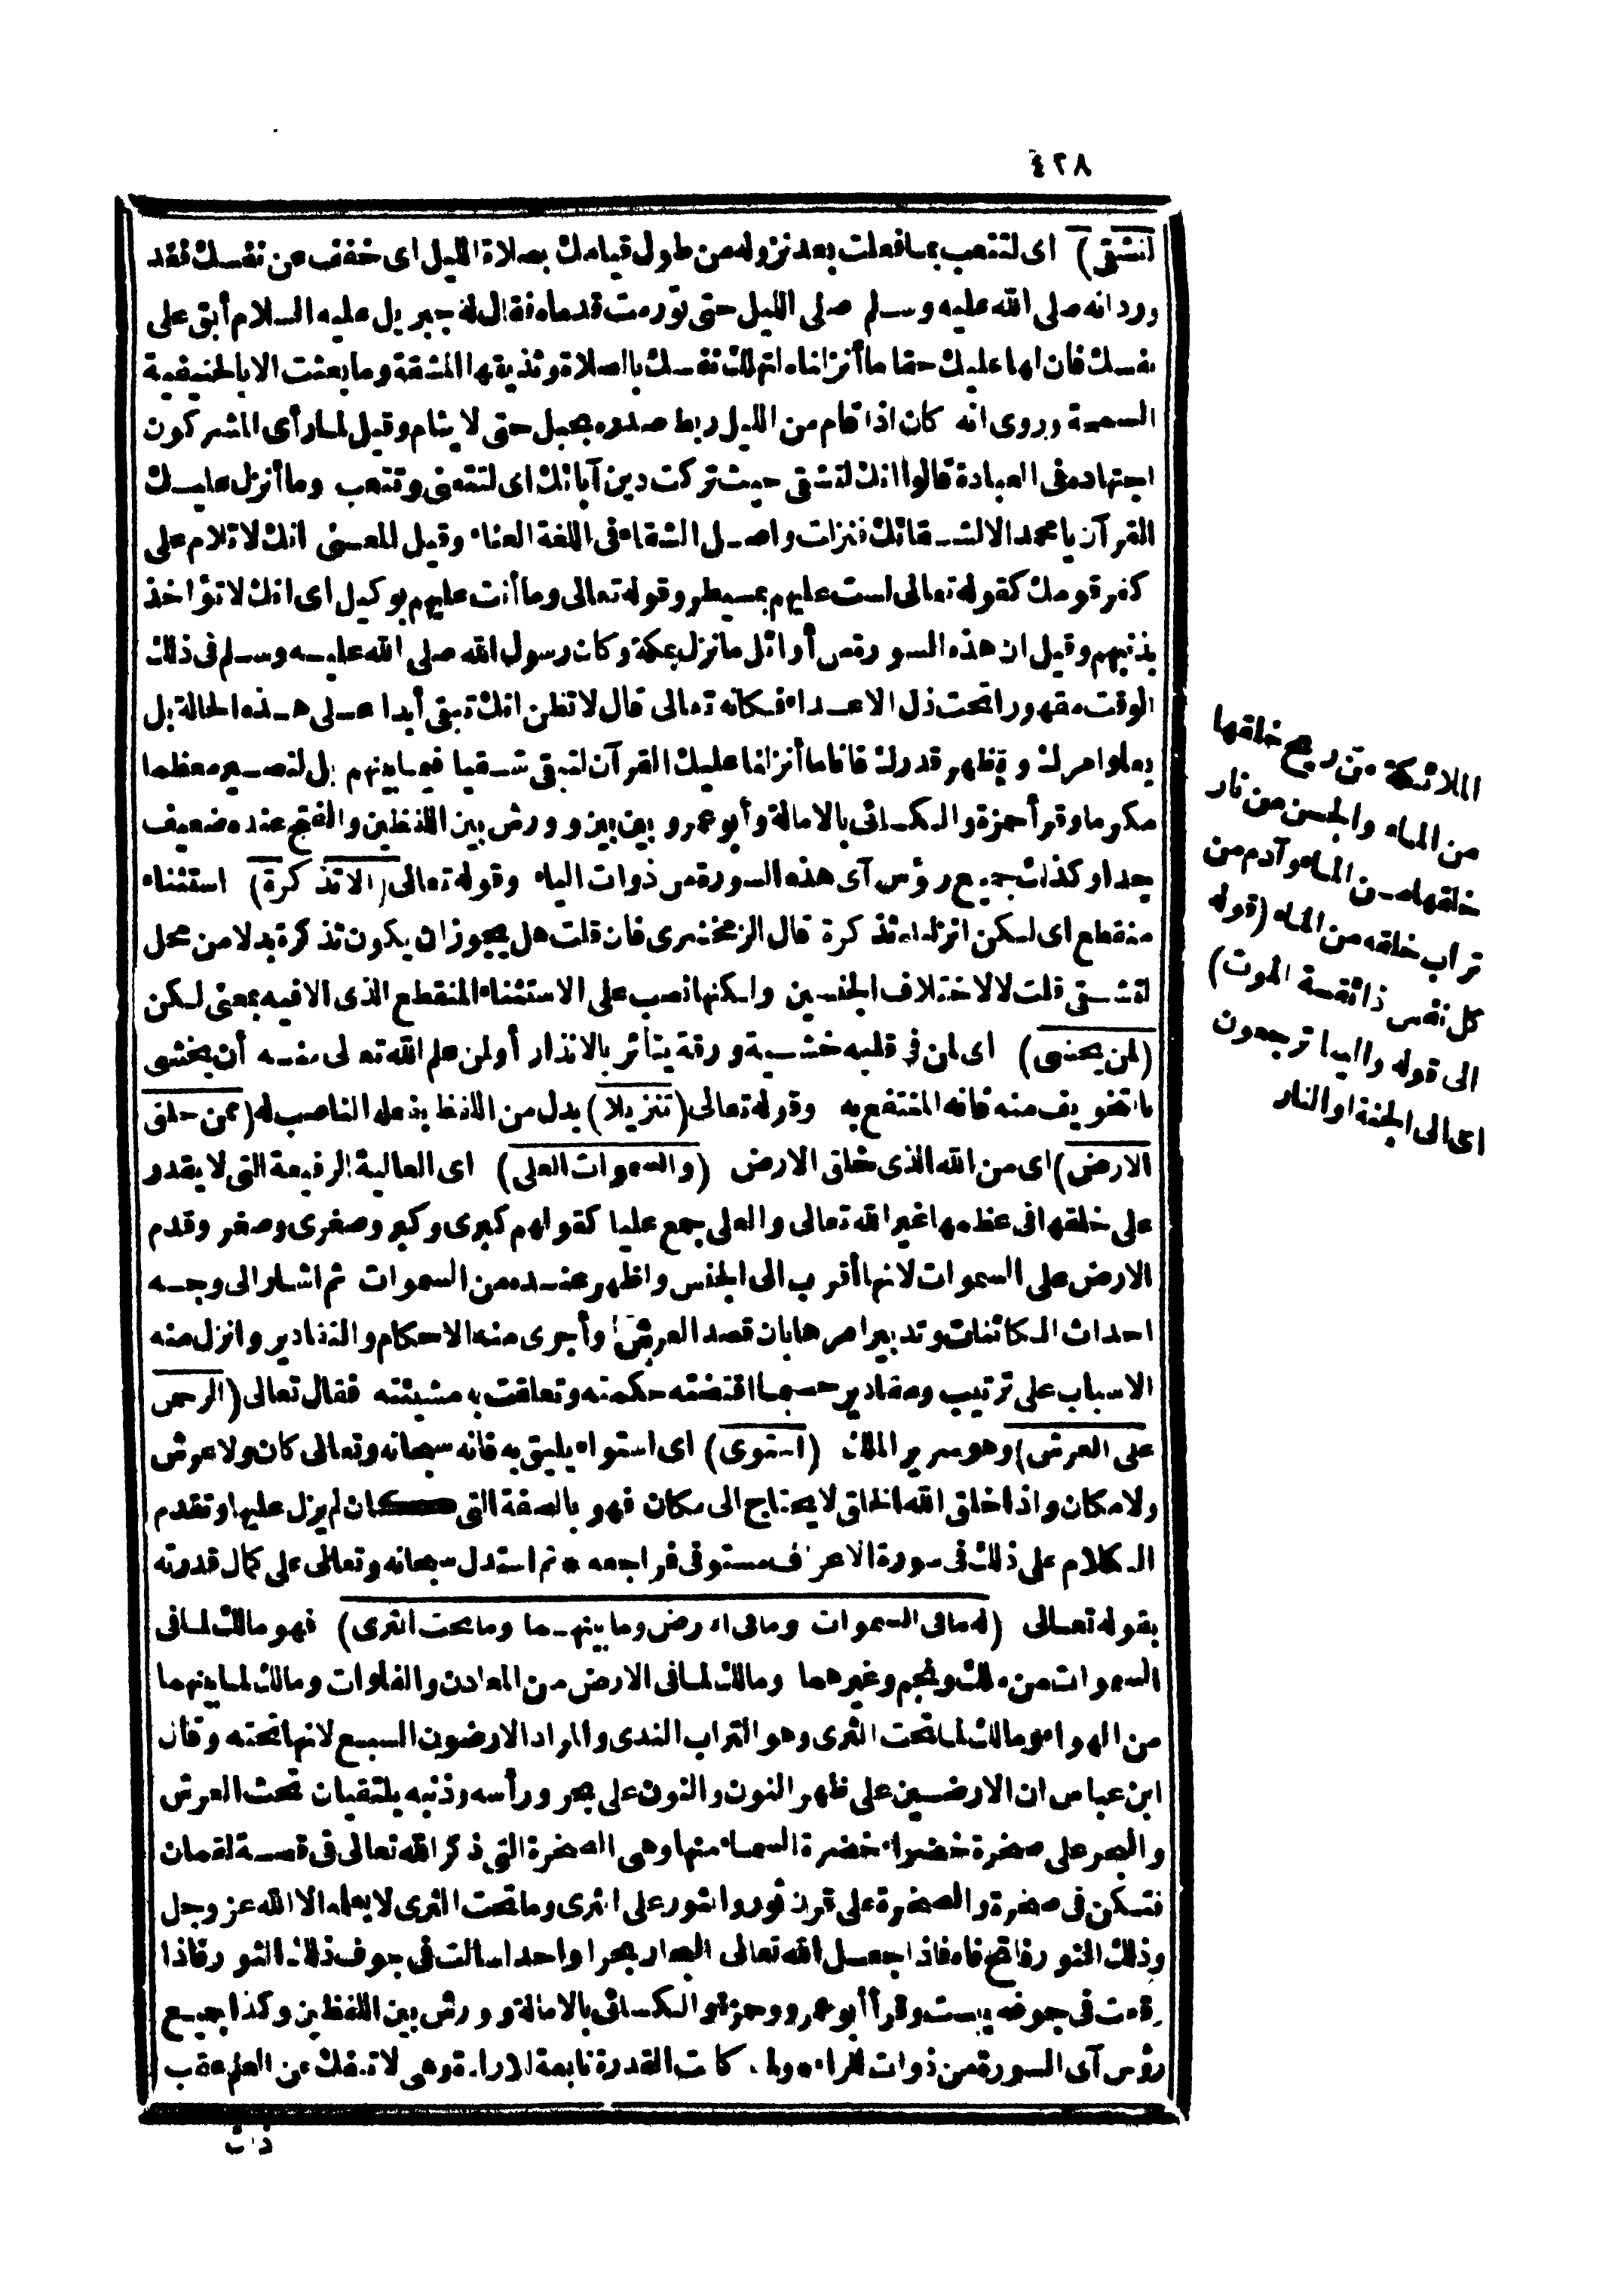 ٤٢٨
لتشقى) اى لتتعب بما فعلت بعد نزوله من طول قيامك بصلاة الليل اى خفف عن نفسك فقد
ورد انه صلى الله عليه وسلم صلى الليل حتى تورمت قدماه فقال له جبريل عليه السلام أبق على
نفسك فان لها عليك حقا ما أنزلناه لتهلك نفسك بالصلاة وتذيقها المشقة وما بعثت الا بالحنيفية
السمحة وروى انه كان اذا قام من الليل ربط صدره بحبل حتى لا ينام وقيل لما رأى المشركون
اجتهاده فى العبادة قالوا انك لتشقى حيث تركت دين آبائك اى لتتعنى وتتعب وما أنزل عليك
القرآن يا محمد الا لشقائك فنزلت وأصل الشقاء فى اللغة العناء وقيل المعنى انك لا تلام على
كفر قومك كقوله تعالى لست عليهم بمسيطر وقوله تعالى وما أنت عليهم بوكيل اى انك لا تؤاخذ
بذنبهم وقيل ان هذه السورة من أوائل ما نزل بمكة وكان رسول الله صلى الله عليه وسلم فى ذلك
الوقت مقهورا تحت ذل الاعداء فكانه تعالى قال لا تظن انك تبقى أبدا على هذه الحالة بل
يعلو امرك ويظهر قدرك فانا ما أنزلنا عليك القرآن لتبقى شقيا فيما بينهم بل لتصير معظما
مكرما وقرأ حمزة والكسائى بالامالة وأبو عمرو بين بين وورش بين اللفظين والفتح عنده ضعيف
جدا وكذلك جميع رؤس آى هذه السورة من ذوات الياء وقوله تعالى (الا تذكرة) استثناء
منقطع اى لكن انزلناه تذكرة قال الزمخشرى فان قلت هل يجوز ان يكون تذكرة بدلا من محل
لتشقى قلت لا لاختلاف الجنسين ولكنها نصب على الاستثناء المنقطع الذى الا فيه بمعنى لكن
(لمن يخشى) اى لمن فى قلبه خشية ورقة يتأثر بالانذار أو لمن علم الله تعالى منه أن يخشى
بالتخويف منه فانه المنتفع به وقوله تعالى (تنزيلا) بدل من اللفظ بفعله الناصب له (ممن خلق
الارض) اى من الله الذى خلق الارض (والسموات العلى) اى العالية الرفيعة التى لا يقدر
على خلقها فى عظمها غير الله تعالى والعلى جمع عليا كقولهم كبرى وكبر وصغرى وصغر وقدم
الارض على السموات لانها أقرب الى الجنس واظهر عنده من السموات ثم اشار الى وجه
احداث الكائنات وتدبير امرها بان قصد العرش وأجرى منه الاحكام والتقادير وانزل منه
الاسباب على ترتيب ومقادير حسبما اقتضته حكمته وتعلقت به مشيئته فقال تعالى (الرحمن
على العرش) وهو سرير الملك (استوى) اى استواء يليق به فانه سبحانه وتعالى كان ولا عرش
ولا مكان واذا خلق الله الخلق لا يحتاج الى مكان فهو بالصفة التى كان لم يزل عليها وتقدم
الكلام على ذلك فى سورة الاعراف مستوفى فراجعه * ثم استدل سبحانه وتعالى على كمال قدرته
بقوله تعالى (له ما فى السموات وما فى الارض وما بينهما وما تحت الثرى) فهو مالك لما فى
السموات من ملك ونجم وغيرهما ومالك لما فى الارض من المعادن والفلوات ومالك لما بينهما
من الهواء ومالك لما تحت الثرى وهو التراب الندى والمراد الارضون السبع لانها تحته وقال
ابن عباس ان الارضين على ظهر النون والنون على بحر ورأسه وذنبه يلتقيان تحت العرش
والبحر على صخرة خضراء خضرة السماء منها وهى الصخرة التى ذكر الله تعالى فى قصة لقمان
فتكن فى صخرة والصخرة على قرن ثور والثور على الثرى وما تحت الثرى لا يعلمه الا الله عز وجل
وذلك الثور فاتح فاه فاذا جعل الله تعالى البحار بحرا واحدا سالت فى جوف ذلك الثور فاذا
وقعت فى جوفه يبست وقرأ أبو عمرو وحمزة والكسائى بالامالة وورش بين اللفظين وكذا جميع
رؤس آى السورة من ذوات الراء ولما كانت القدرة تابعة للارادة وهى لا تنفك عن العلم عقب
الملائكة من ريح خلقها
من الماء والجن من نار
خلقها من الماء وآدم من
تراب خلقه من الماء (قوله
كل نفس ذائقة الموت)
الى قوله والينا ترجعون
اى الى الجنة او النار